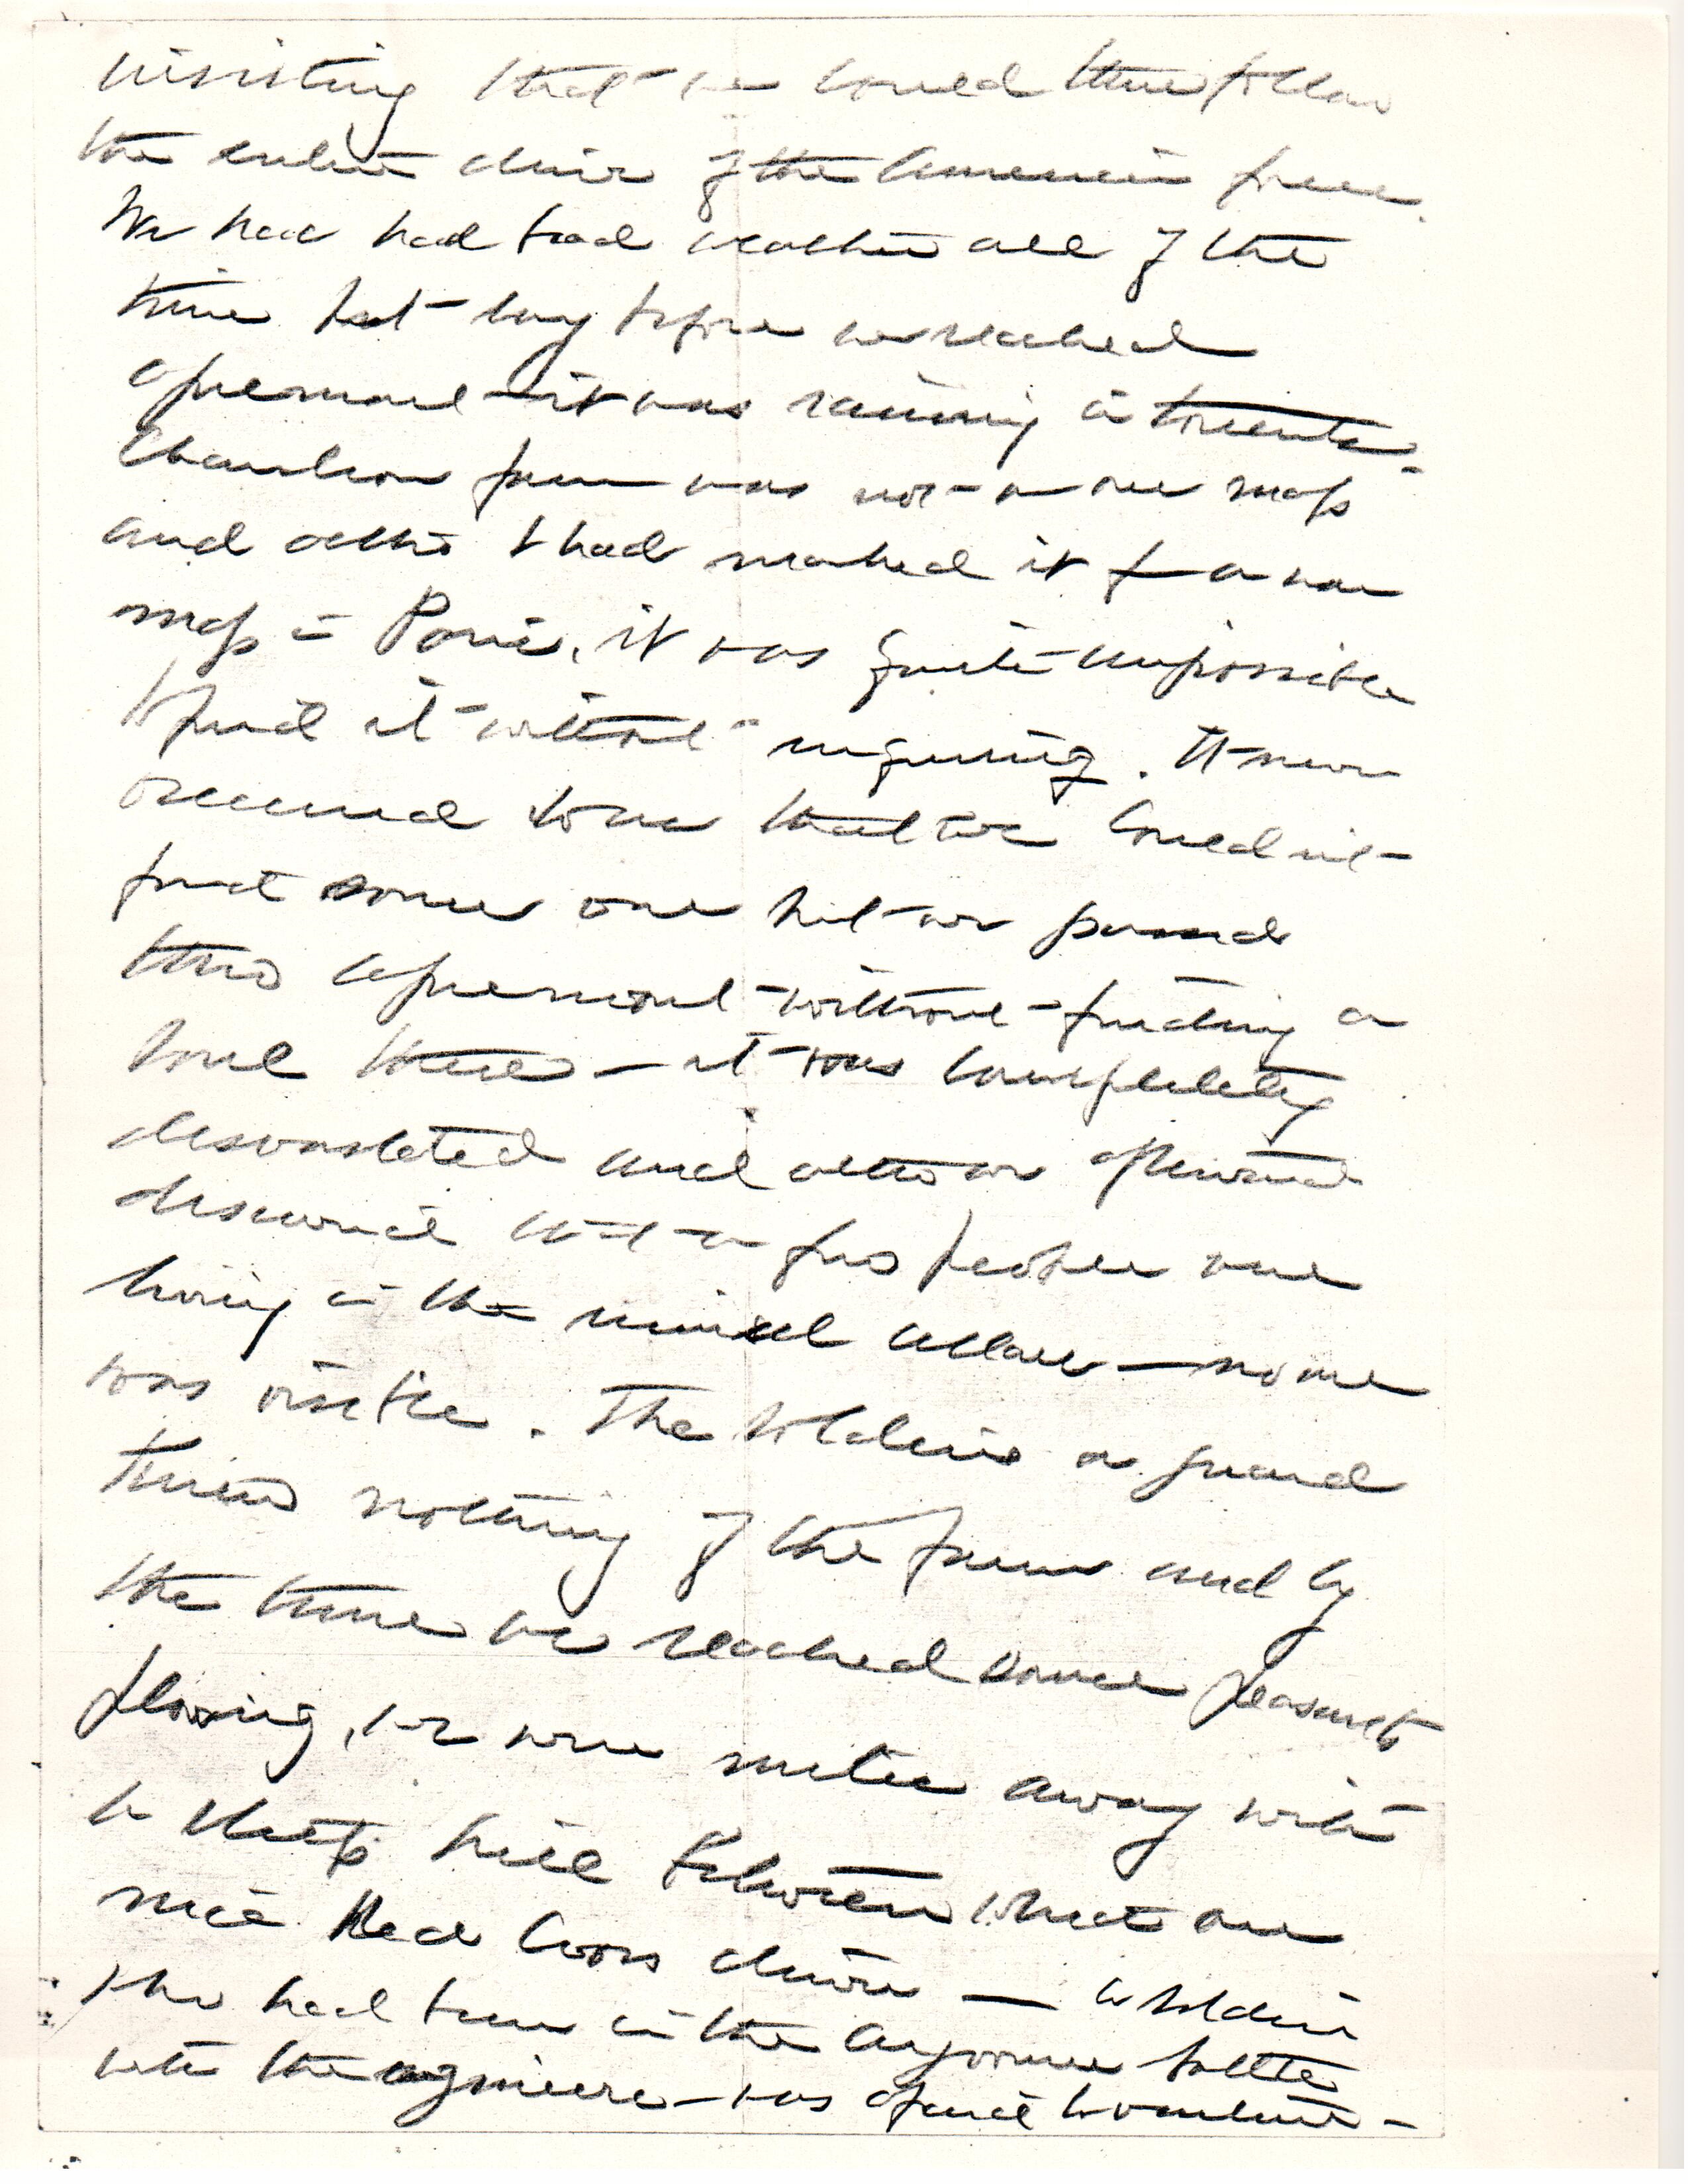 insisting that we could thus follow
the entire drive of the American forces.
We had had bad weather all of the
time but long before we reached
Apremont it was raining in torrents.
farm was not on our map
and altho I had marked it from a war
map in Paris, it was quite impossible
to find it without inquiring. It never
occurred to me that we could not
find some one but we passed
thro Apremont without finding a
soul there — it was completely
devastated and altho we afterward
discovered that a few people were
living in the ruined cellars — no one
was visible. The soldiers on guard
knew nothing of the farm and by
the time we reached some peasants
plowing, we were miles away with
a steep hill between that our
nice Red Cross driver — a soldier
who had been in the Argonne battle
with the engineers — was afraid to